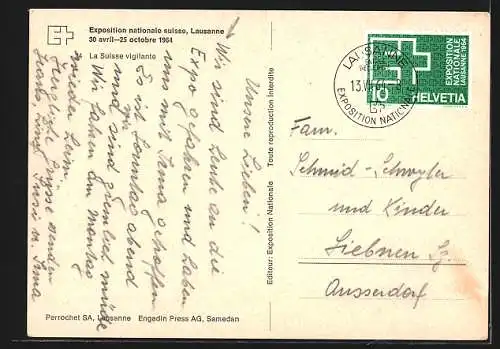 Exposition nationale suisse, Lausanne
30 avril—25 octobre 1964
La Suisse vigilante
Unsere Lieben!
Wir sind heute an die
Expo gefahren und haben
uns mit Irma getroffen
Es ist Sonntag abend
und sind ziemlich müde
Wir fahren am Montag
wieder heim.
Herzliche Grüsse senden
Hans, Susi u. Irma
Perrochet SA, Lausanne
Engadin Press AG, Samedan
Editeur: Exposition Nationale
Toute reproduction interdite
LAUSANNE
13.VI.64
EXPOSITION NATIONALE
EXPOSITION
NATIONALE
LAUSANNE 1964
10 HELVETIA
Fam.
Schmid-Schnyder
und Kinder
Siebnen Sz.
Ausserdorf